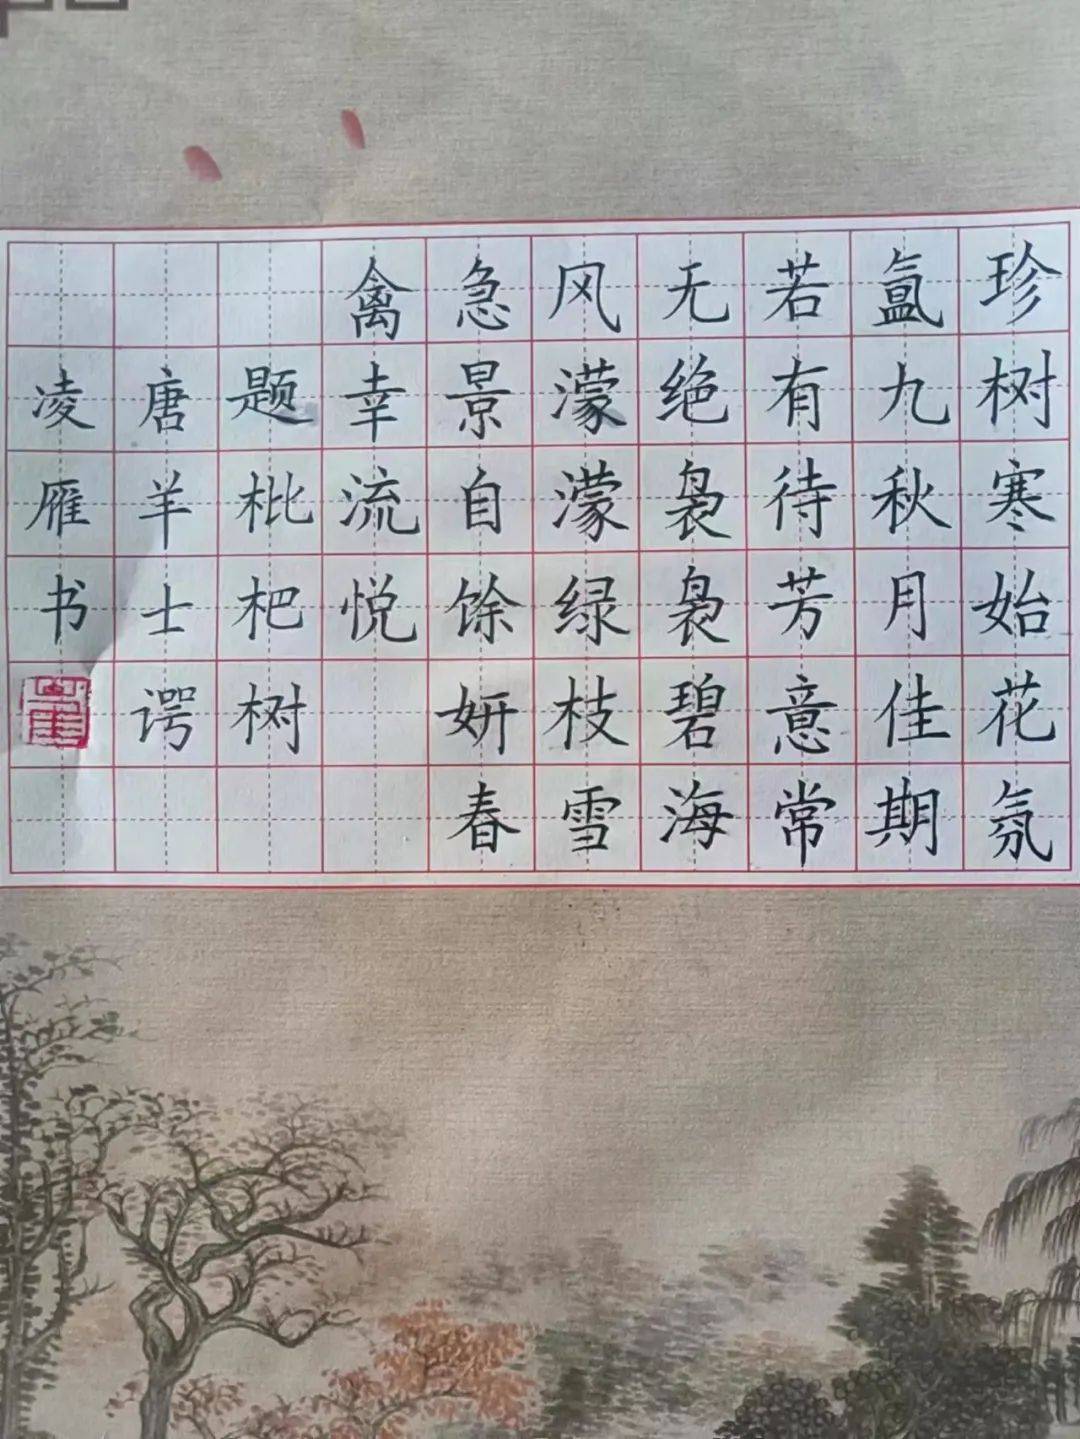 珍树寒始花氛
氲九秋月佳期
若有待芳意常
无绝袅袅碧海
风濛濛绿枝雪
急景自馀妍春
禽幸流悦
题枇杷树
唐羊士谔
凌雁书